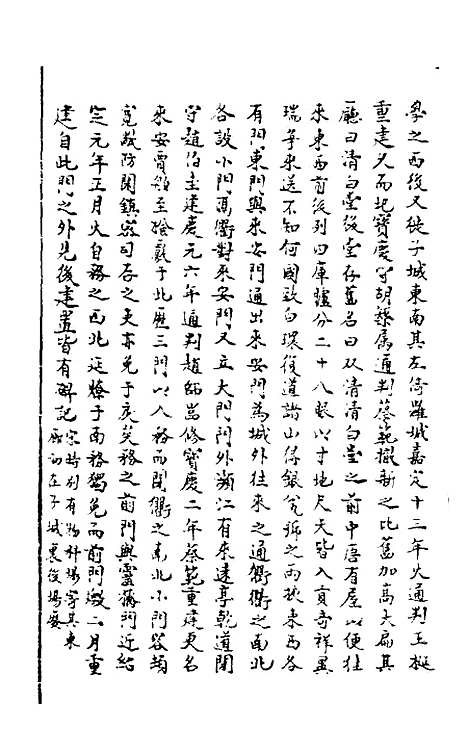 學之西後又徙子城東南其左倚羅城嘉定十三年火通判王梴
重建久而圮寶慶守胡榘属通判蔡範撤新之比舊加高大扁其
廳曰清白堂後堂存舊名曰双清清白堂之前中唐有屋以便往
來東西前後列四庫臚分二十八眼以寸地尺天皆入貢奇祥異
瑞爭來送不知何國致白環復道諸山得銀瓮號之兩挾東西各
有門東門與來安門通出來安門為城外往來之通衢衢之南北
各設小門隔衢對來安門又立大門門外瀕江有來遠亭乾道間
守趙伯圭建慶元六年通判趙師嵒修寶慶二年蔡範重建更名
來安賈舶至檢覈于此歷三門以入務而閉衢之南北小門容頓
寬敞防閑鎮密司存之吏亦免于戾矣務之前門與靈橋門近紹
定元年正月火自務之西北延燎于南務獨免而前門燬二月重
建自此門之外見後建置皆有碑記宋時别有物料場寄其東
廊初在子城裏後場廢